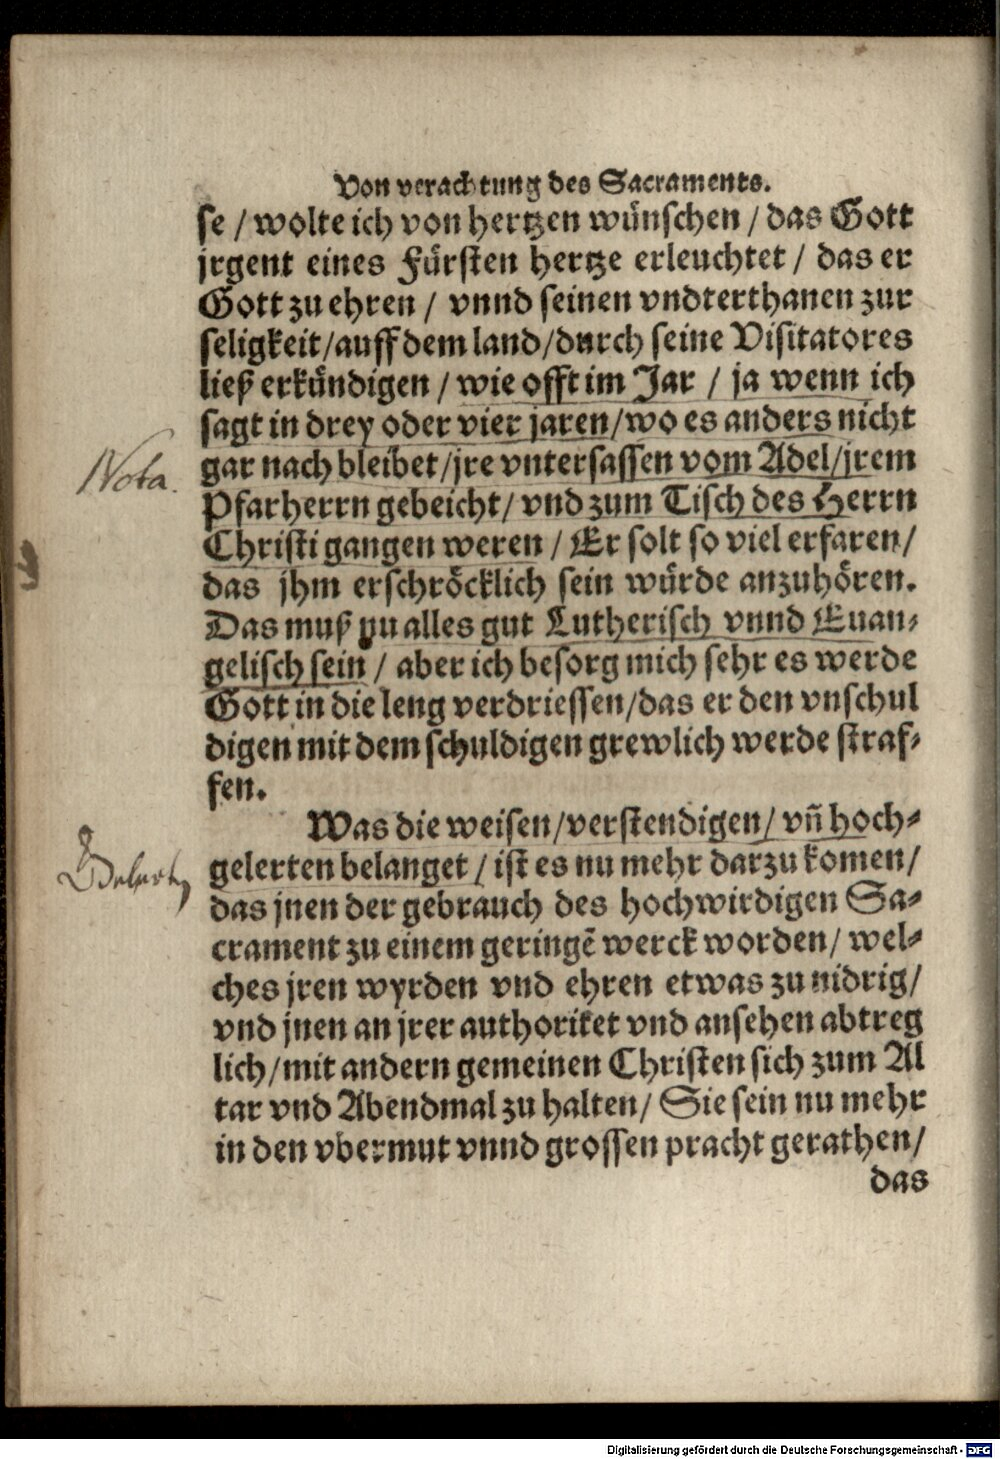 Von verachtung des Sacraments.
se / wolte ich von hertzen wünschen / das Gott
jrgent eines Fürsten hertze erleuchtet / das er
Gott zu ehren / vnnd seinen vndterthanen zur
seligkeit/auff dem land/durch seine Visitatores
ließ erkündigen / wie offt im Jar / ja wenn ich
sagt in drey oder vier jaren/wo es anders nicht
Nota.
gar nach bleibet/jre vntersassen vom Adel/jrem
Pfarherrn gebeicht/ vnd zum Tisch des Herrn
Christi gangen weren / Er solt so viel erfaren/
das jhm erschröcklich sein würde anzuhören.
Das muß nu alles gut Lutherisch vnnd Euan-
gelisch sein / aber ich besorg mich sehr es werde
Gott in die leng verdriessen/das er den vnschul
digen mit dem schuldigen grewlich werde straf-
fen.
Was die weisen/verstendigen/ vñ hoch-
gelerten belanget / ist es nu mehr darzu komen/
das jnen der gebrauch des hochwirdigen Sa-
crament zu einem geringē werck worden/ wel-
ches jren wyrden vnd ehren etwas zu nidrig/
vnd jnen an jrer authoritet vnd ansehen abtreg
lich/mit andern gemeinen Christen sich zum Al
tar vnd Abendmal zu halten/ Sie sein nu mehr
in den vbermut vnnd grossen pracht gerathen/
das
Digitalisierung gefördert durch die Deutsche Forschungsgemeinschaft - DFG